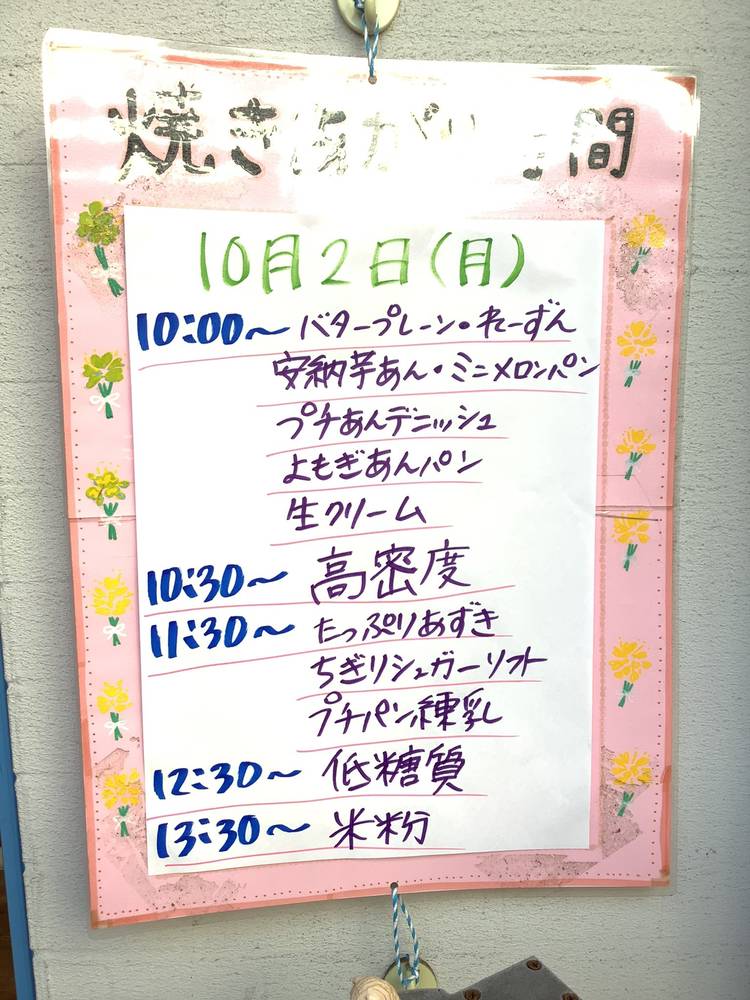 焼きあがり 間
10月2日(月)
10:00〜 バタープレーン・れーずん
安納芋あん・ミニメロンパン
プチあんデニッシュ
よもぎあんパン
生クリーム
10:30〜 高密度
11:30〜 たっぷりあずき
ちぎりシュガーソフト
プチパン練乳
12:30〜 低糖質
13:30〜 米粉